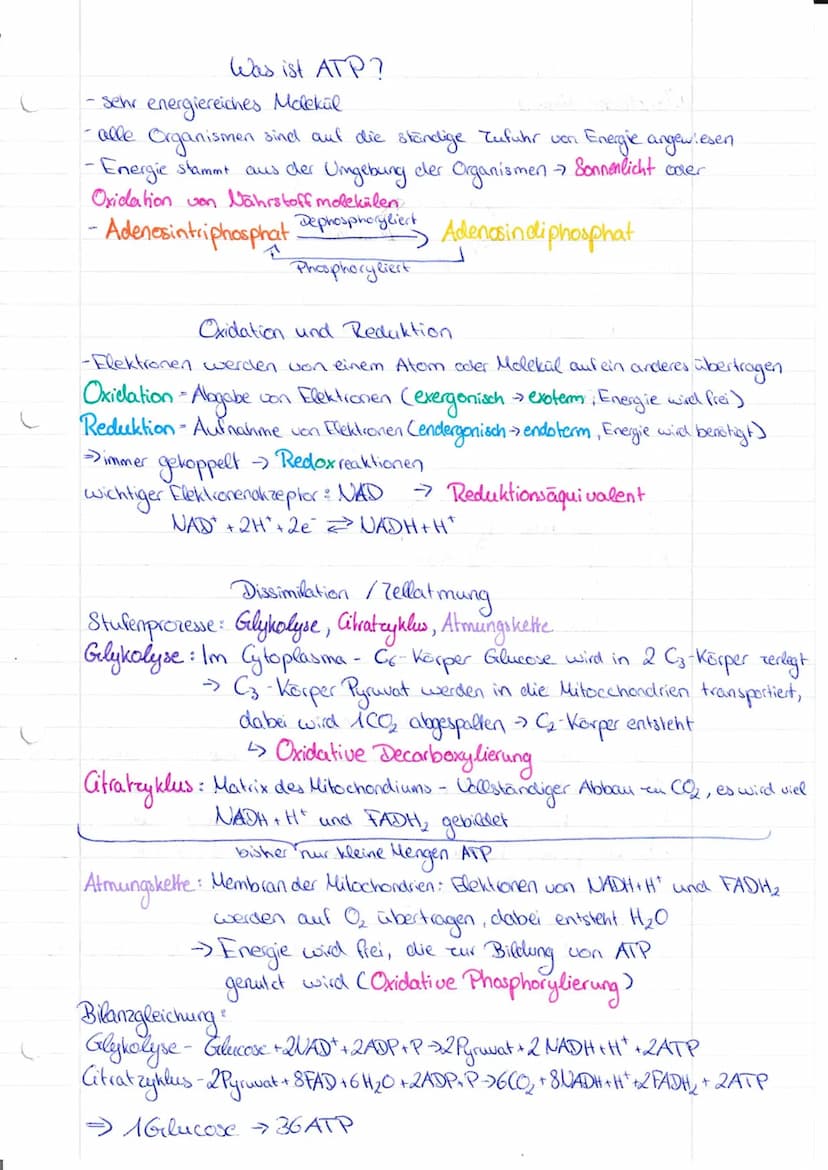 Was ist ATP?
- sehr energiereiches Molekül
- alle Organismen sind auf die ständige Zufuhr von Energie angewiesen
- Energie stammt aus der Umgebung der Organismen → Sonnenlicht oder
Oxidation von Nährstoffmolekülen
- Adenosintriphosphat Dephosphoryliert → Adenosindiphosphat
Phosphoryliert
Oxidation und Reduktion
- Elektronen werden von einem Atom oder Molekül auf ein anderes übertragen
Oxidation = Abgabe von Elektronen (exergonisch → exoterm, Energie wird frei)
Reduktion = Aufnahme von Elektronen (endergonisch → endoterm, Energie wird benötigt)
⇒ immer gekoppelt → Redoxreaktionen
wichtiger Elektronenakzeptor: NAD → Reduktionsäquivalent
NAD⁺ + 2H⁺ + 2e⁻ ⇌ NADH + H⁺
Dissimilation / Zellatmung
Stufenprozesse: Glykolyse, Citratzyklus, Atmungskette
Glykolyse: Im Cytoplasma - C₆-Körper Glucose wird in 2 C₃-Körper zerlegt
→ C₃-Körper Pyruvat werden in die Mitocchondrien transportiert,
dabei wird 1CO₂ abgespalten → C₂-Körper entsteht
↳ Oxidative Decarboxylierung
Citratzyklus: Matrix des Mitochondiums - Vollständiger Abbau zu CO₂, es wird viel
NADH + H⁺ und FADH₂ gebildet
bisher nur kleine Mengen ATP
Atmungskette: Membran der Mitochondrien: Elektionen von NADH+H⁺ und FADH₂
werden auf O₂ übertragen, dabei entsteht H₂O
→ Energie wird frei, die zur Bildung von ATP
genutzt wird (Oxidative Phosphorylierung)
Bilanzgleichung:
Glykolyse - Glucose + 2NAD⁺ + 2ADP + P → 2Pyruvat + 2 NADH + H⁺ + 2ATP
Citratzyklus - 2Pyruvat + 8FAD + 6H₂O + 2ADP + P → 6CO₂ + 8NADH + H⁺ + 2FADH₂ + 2ATP
⇒ 1Glucose → 36ATP